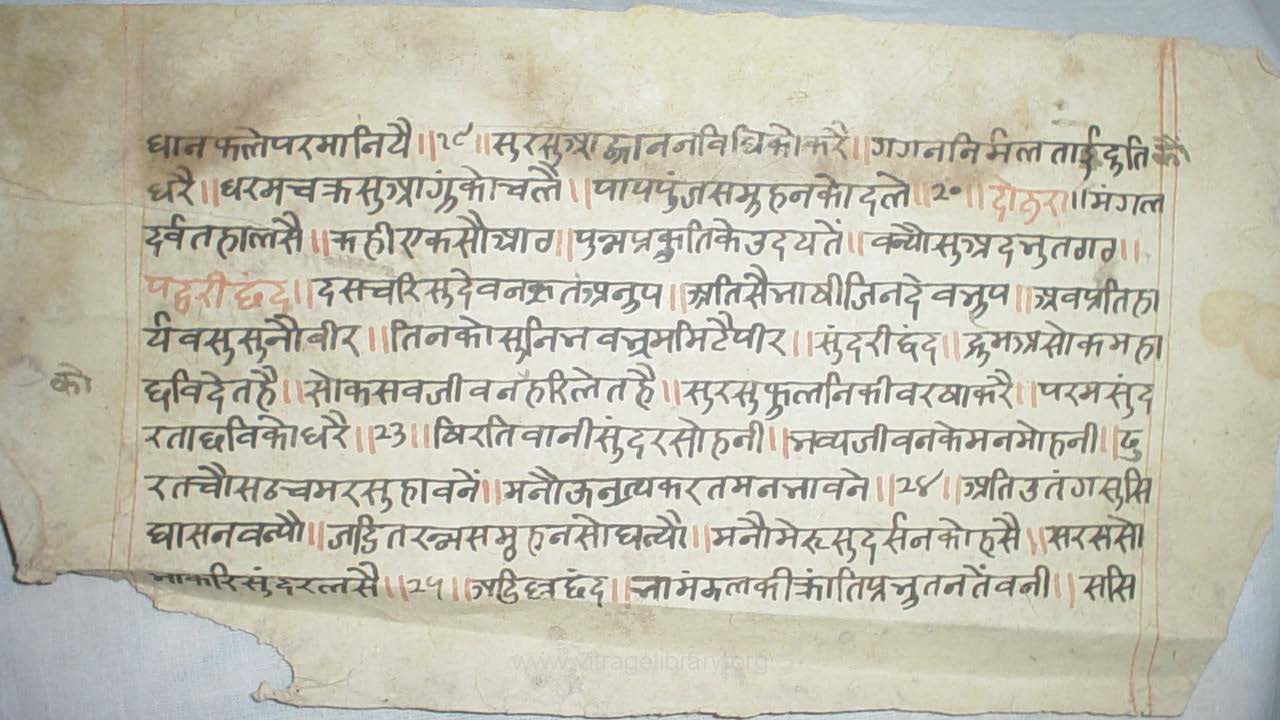 धान फले परमानियै ॥१९॥ सुरसुआह्वाननविधिकोकरै ॥ गगननिर्मल ताईदुति कौ
धरै ॥ धरमचक्रसुआगुंकोचलै ॥ पापपुंजसमुहनकोदले ॥२०॥ दोहरा ॥ मंगल
दर्वतहालसै ॥ कहीएकसौआठ ॥ पुन्नप्रकृतिकेउदयतें ॥ वन्यौसुअदभुतगठ ॥
पद्धरीछंद ॥ दसचरिसुदेवनकृतंअनुप ॥ अतिसैभाषीजिनदेवभुप ॥ अवप्रतिहा
र्यवसुसुनौवीर ॥ तिनकोसुनिभवभ्रममिटैपीर ॥ सुंदरीछंद ॥ द्रुमअसोकमहा
छविदेतहै ॥ सोकसवजीवनहरिलेतहै ॥ सुरसुफुलनिकीवरषाकरै ॥ परमसुंद
को
रताछविकोधरै ॥२३॥ षिरतिवानीसुंदरसोहनी ॥ भव्यजीवनकेमनमोहनी ॥ ढु
रतचौसठचमरसुहावनें ॥ मनौऊनृत्यकरतमनभावने ॥२४॥ अतिउतंगसुसि
घासनवन्यौ ॥ जडितरत्नसमुहनसोघन्यौ ॥ मनौमेरूसुदर्सनकोहसै ॥ सरससो
भाकरिसुंदरलसै ॥२५॥ अडिल्लछंद ॥ भामंडलकीक्रांतिप्रभुतनतेंवनी ॥ ससि
www.vitragelibrary.org